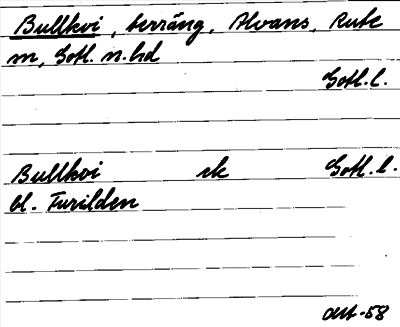 Bullkvi, terräng, Alvans, Rute
sn, Gotl. n. hd
Gotl. l.
Bullkvi sk Gotl. l.
bl. Furilden
okt -58